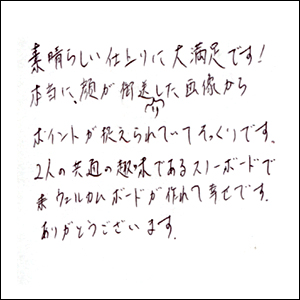 素晴らしい仕上りに大満足です!
本当に、顔が前送した画像から
ポイントが捉えられていてそっくりです。
2人の共通の趣味であるスノーボードで
ウェルカムボードが作れて幸せです。
ありがとうございます。